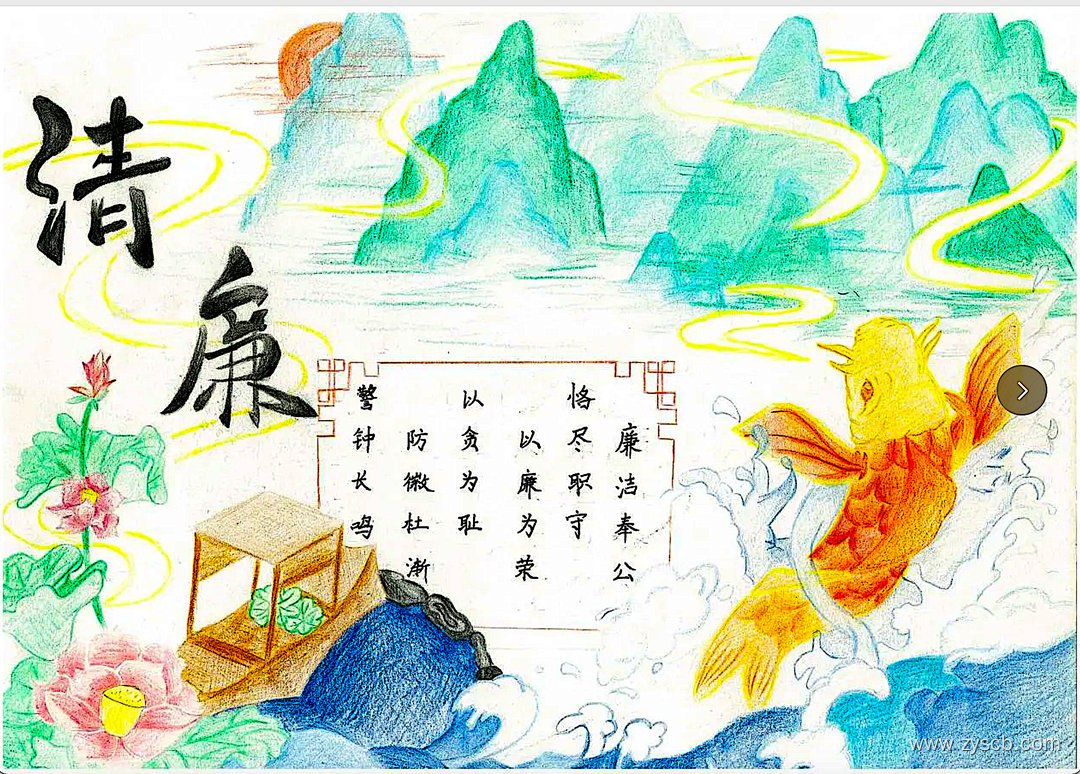 清廉
廉洁奉公
恪尽职守
以廉为荣
以贪为耻
防微杜渐
警钟长鸣
www.zyscb.com